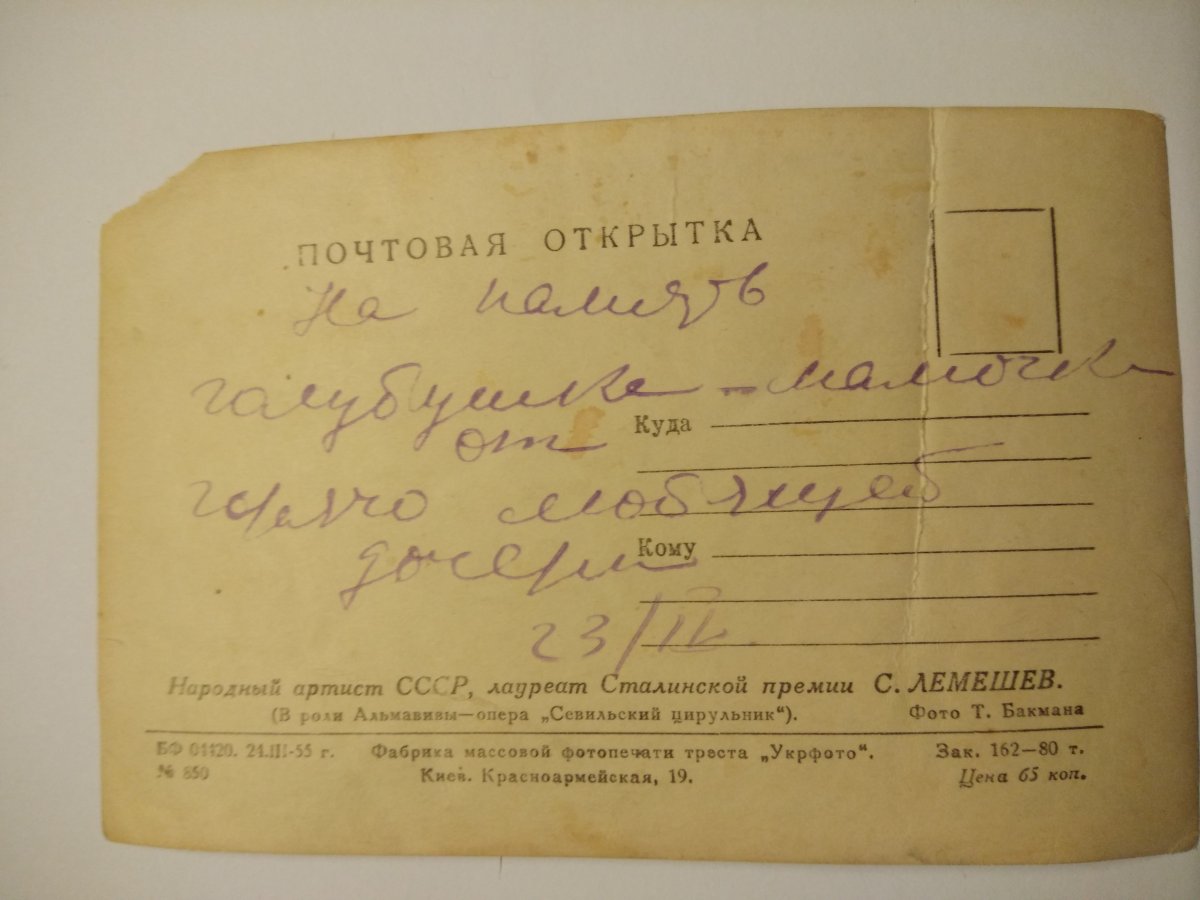 ПОЧТОВАЯ ОТКРЫТКА
На память
голубушке - мамочке
от
Куда
горячо любящей
дочери
Кому
23/IV.
Народный артист СССР, лауреат Сталинской премии С. ЛЕМЕШЕВ.
(В роли Альмавивы—опера „Севильский цирульник“). Фото Т. Бакмана
БФ 01420. 24.III-55 г. Фабрика массовой фотопечати треста „Укрфото“. Зак. 162—80 т.
№ 850 Киев. Красноармейская, 19. Цена 65 коп.